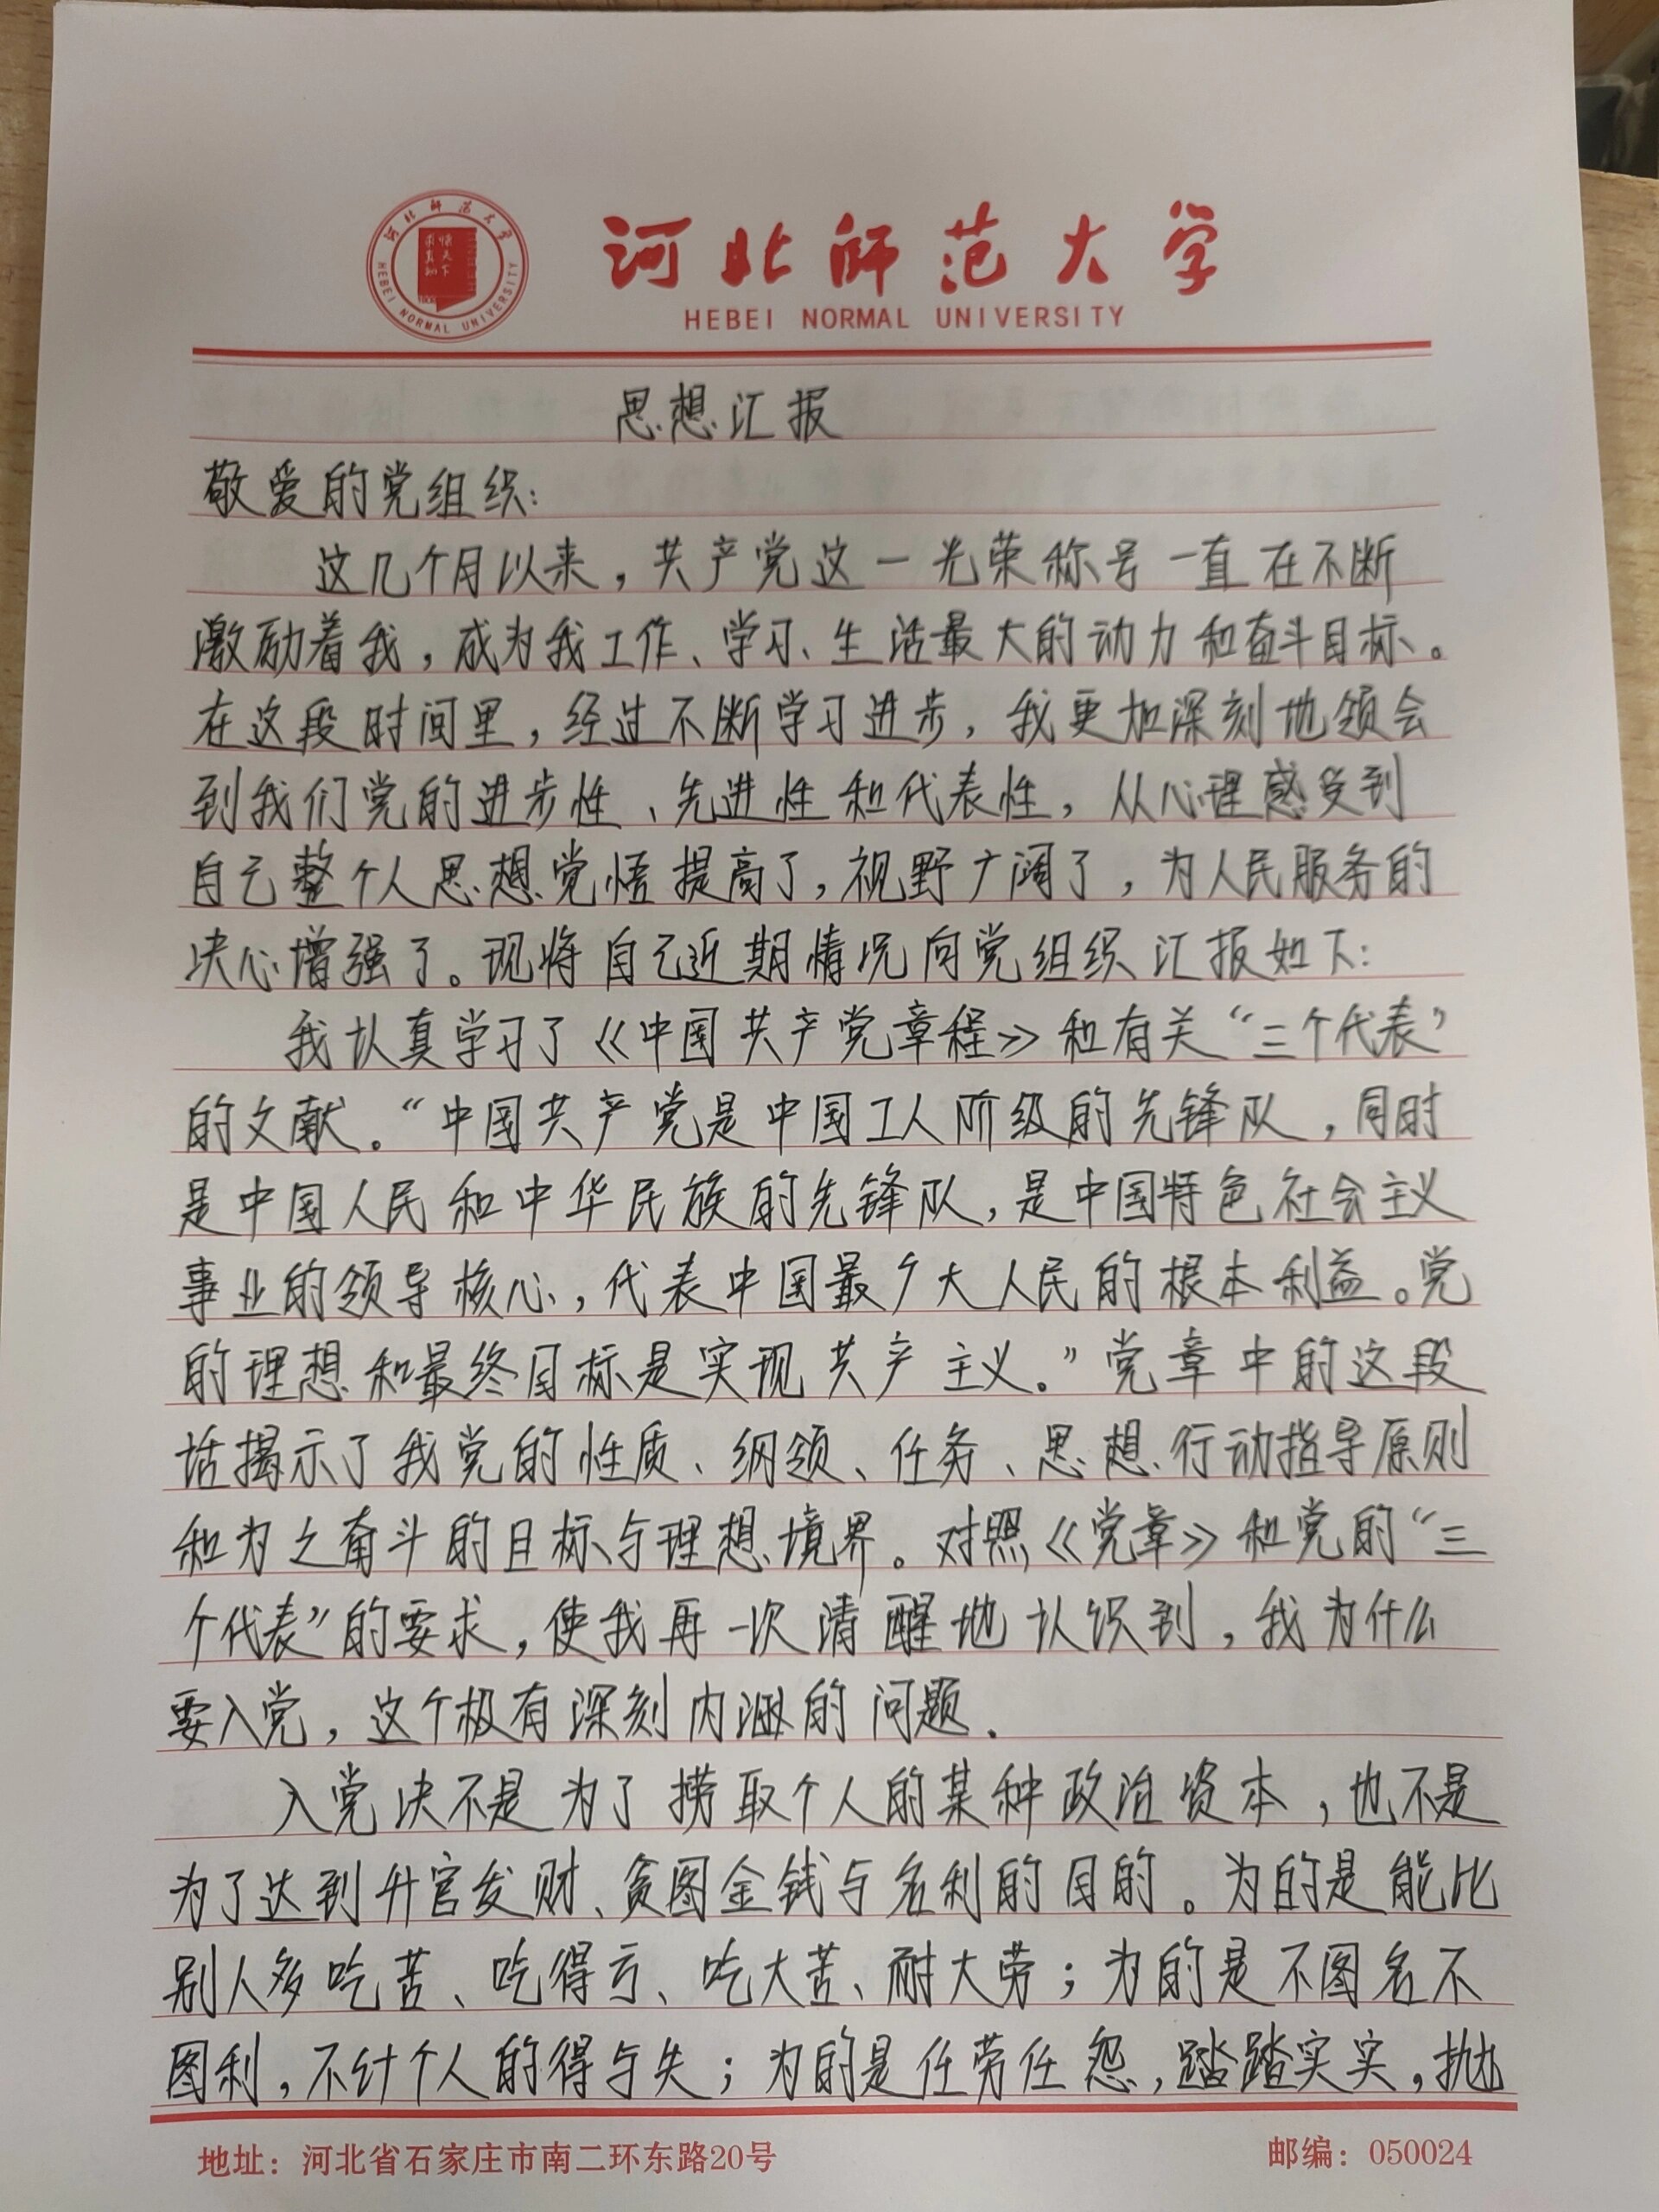 河北师范大学
HEBEI NORMAL UNIVERSITY
思想汇报
敬爱的党组织：
这几个月以来，共产党这一光荣称号一直在不断
激励着我，成为我工作、学习、生活最大的动力和奋斗目标。
在这段时间里，经过不断学习进步，我更加深刻地领会
到我们党的进步性、先进性和代表性，从心理感受到
自己整个人思想觉悟提高了，视野广阔了，为人民服务的
决心增强了。现将自己近期情况向党组织汇报如下：
我认真学习了《中国共产党章程》和有关“三个代表”
的文献。“中国共产党是中国工人阶级的先锋队，同时
是中国人民和中华民族的先锋队，是中国特色社会主义
事业的领导核心，代表中国最广大人民的根本利益。党
的理想和最终目标是实现共产主义。”党章中的这段
话揭示了我党的性质、纲领、任务、思想、行动指导原则
和为之奋斗的目标与理想境界。对照《党章》和党的“三
个代表”的要求，使我再一次清醒地认识到，我为什么
要入党，这个极有深刻内涵的问题．
入党决不是为了捞取个人的某种政治资本，也不是
为了达到升官发财、贪图金钱与名利的目的。为的是能比
别人多吃苦、吃得亏、吃大苦、耐大劳；为的是不图名不
图利，不计个人的得与失；为的是任劳任怨，踏踏实实，抛
地址：河北省石家庄市南二环东路20号
邮编：050024